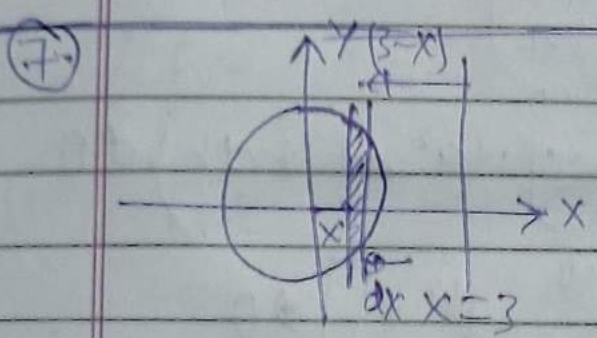 7.
Y (3-x)
X
x
dx x=3